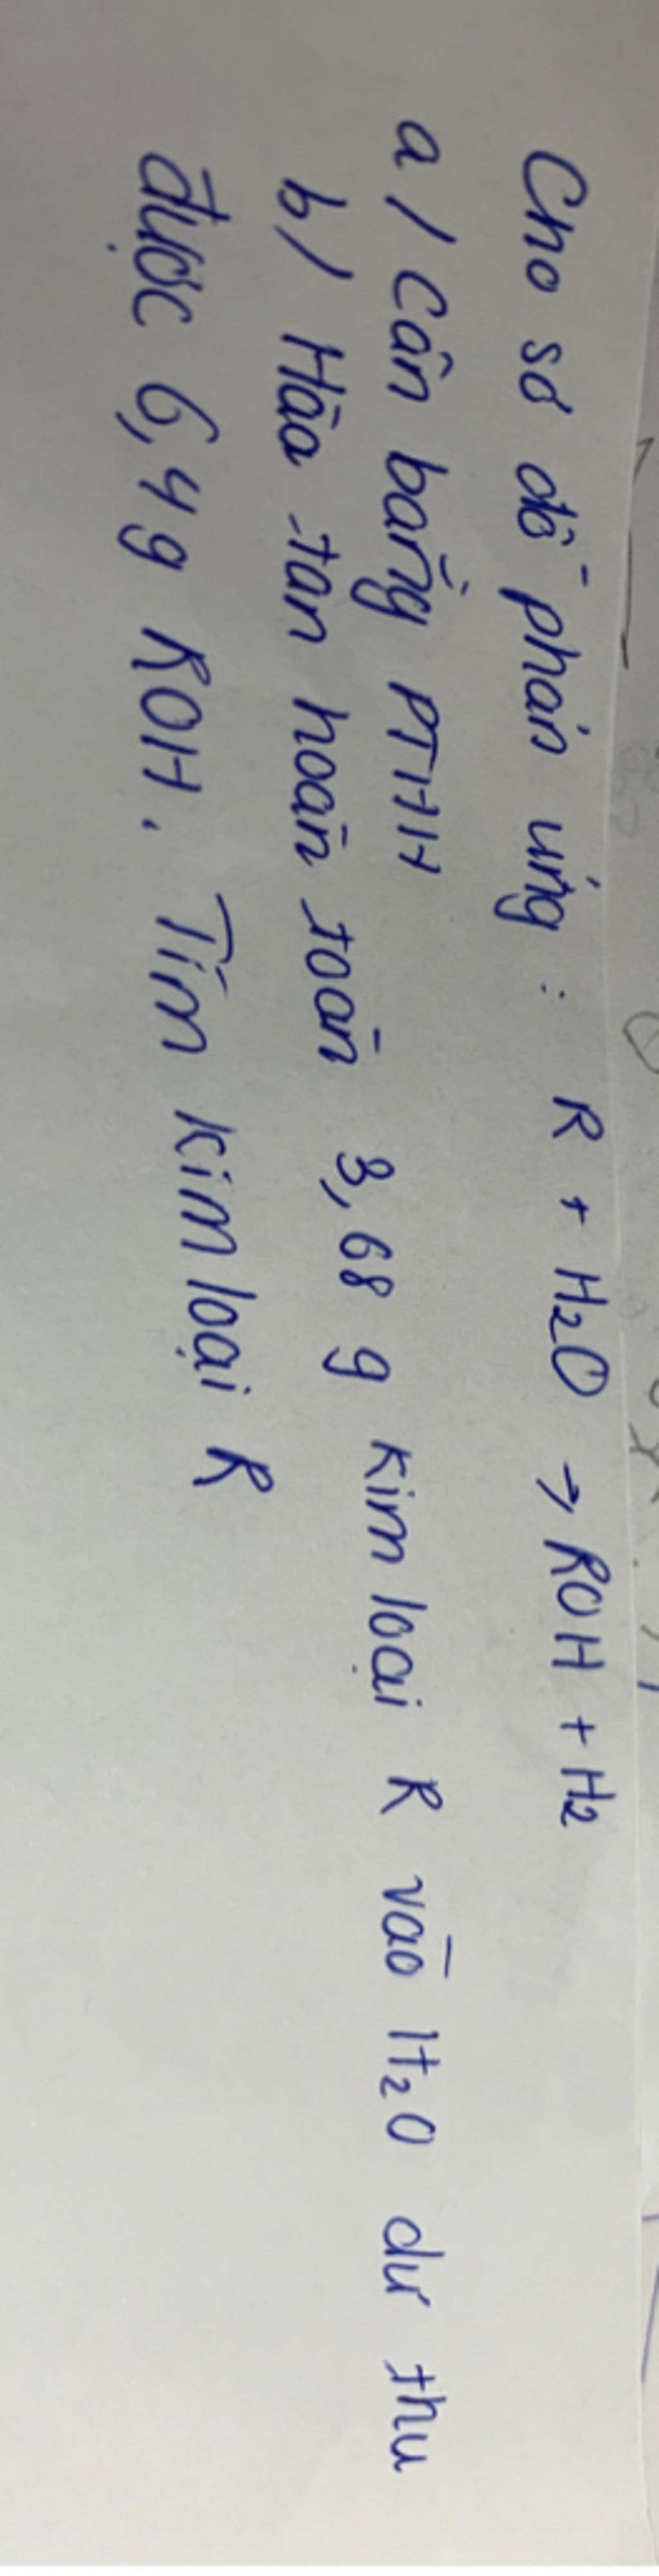 Cho sơ đồ phản ứng : R + H₂O → ROH + H₂
a / Cân bằng PTHH
b / Hòa tan hoàn toàn 3,68 g kim loại R vào H₂O dư thu
được 6,4g ROH. Tìm kim loại R